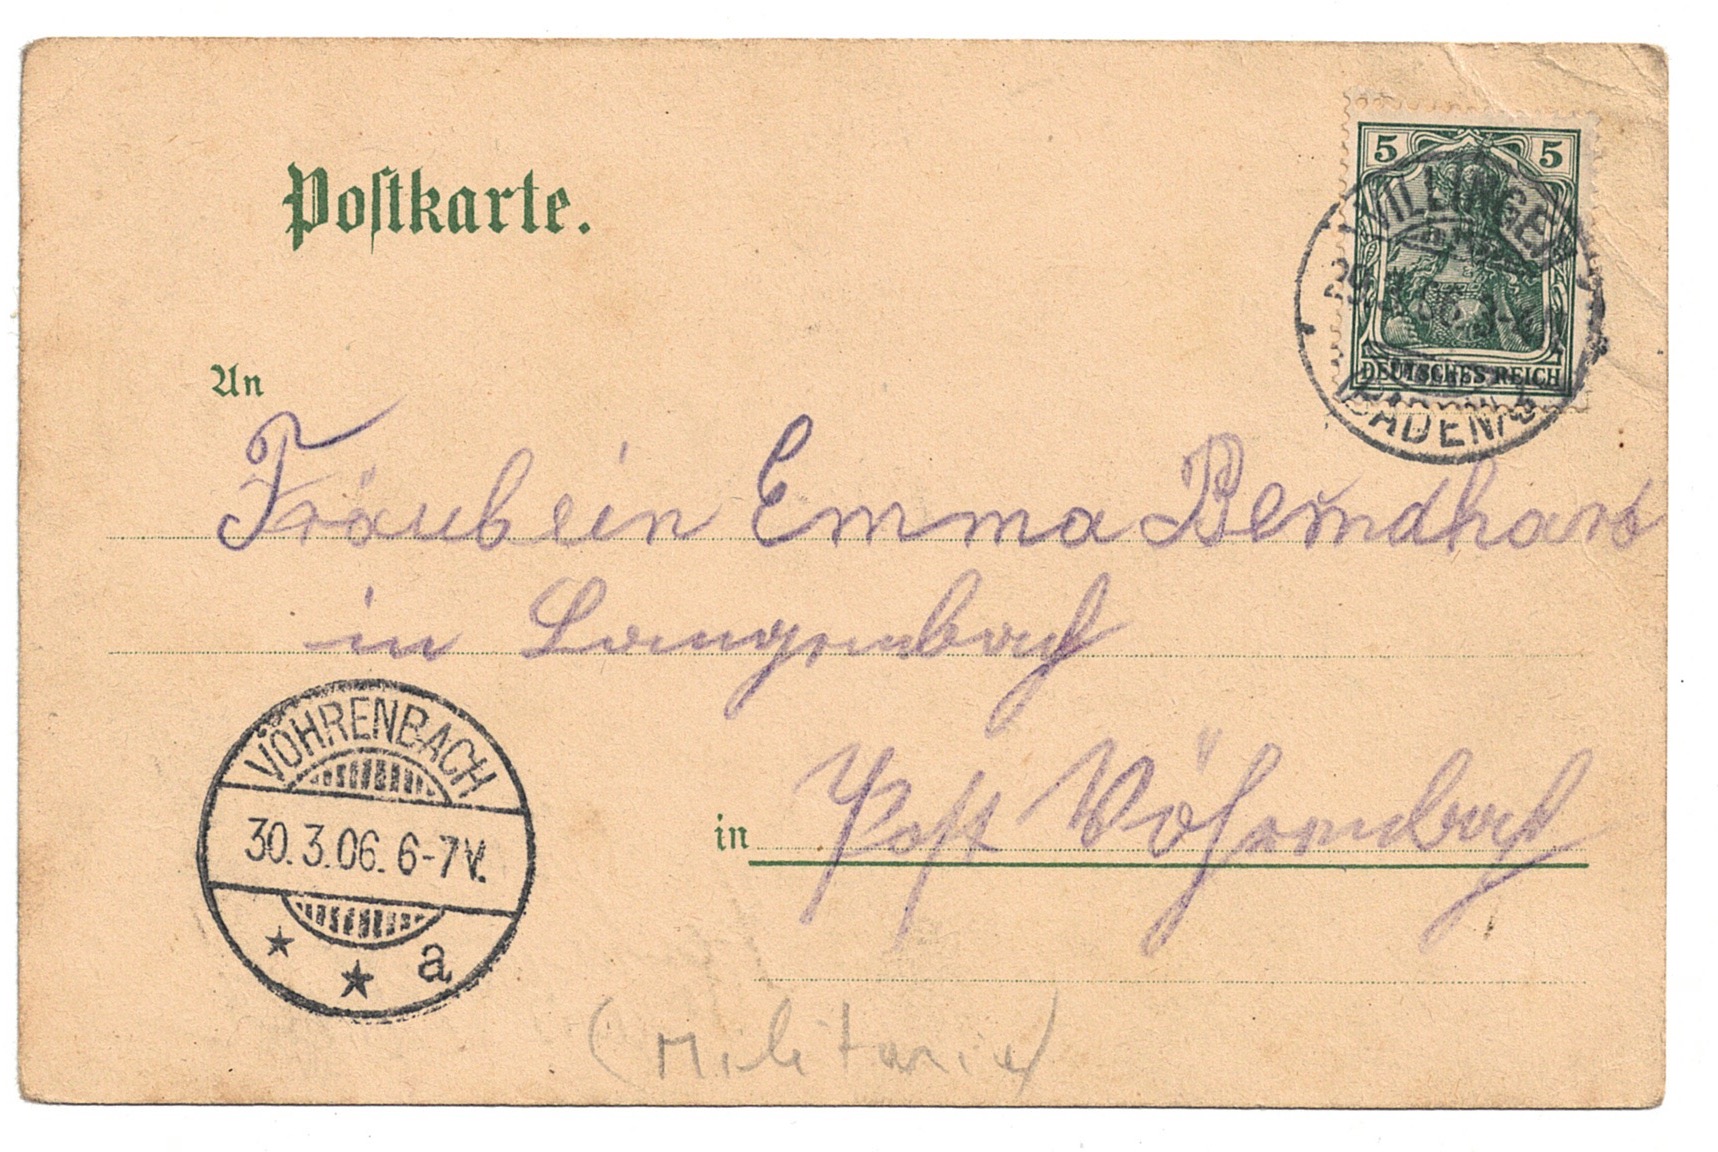 Postkarte.
5 5
VILLINGEN
29. 06.
DEUTSCHES REICH
(BADEN)
An
Fräulein Emma
in Langenbach
VÖHRENBACH
30.3.06. 6-7V.
a
in Post Vöhrenbach
(Militaria)